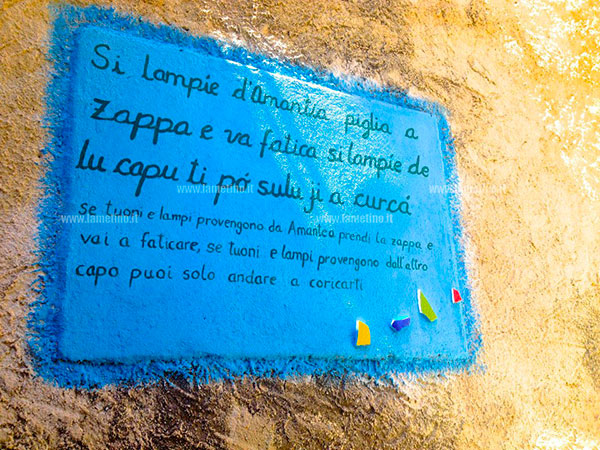 Si lampie d'Amantia piglia a
zappa e va fatica si lampie de
lu capu ti pó sulu ji a curcá
se tuoni e lampi provengono da Amantea prendi la zappa e
vai a faticare, se tuoni e lampi provengono dall'altro
capo puoi solo andare a coricarti
www.lametino.it www.lametino.it
www.lametino.it www.lametino.it